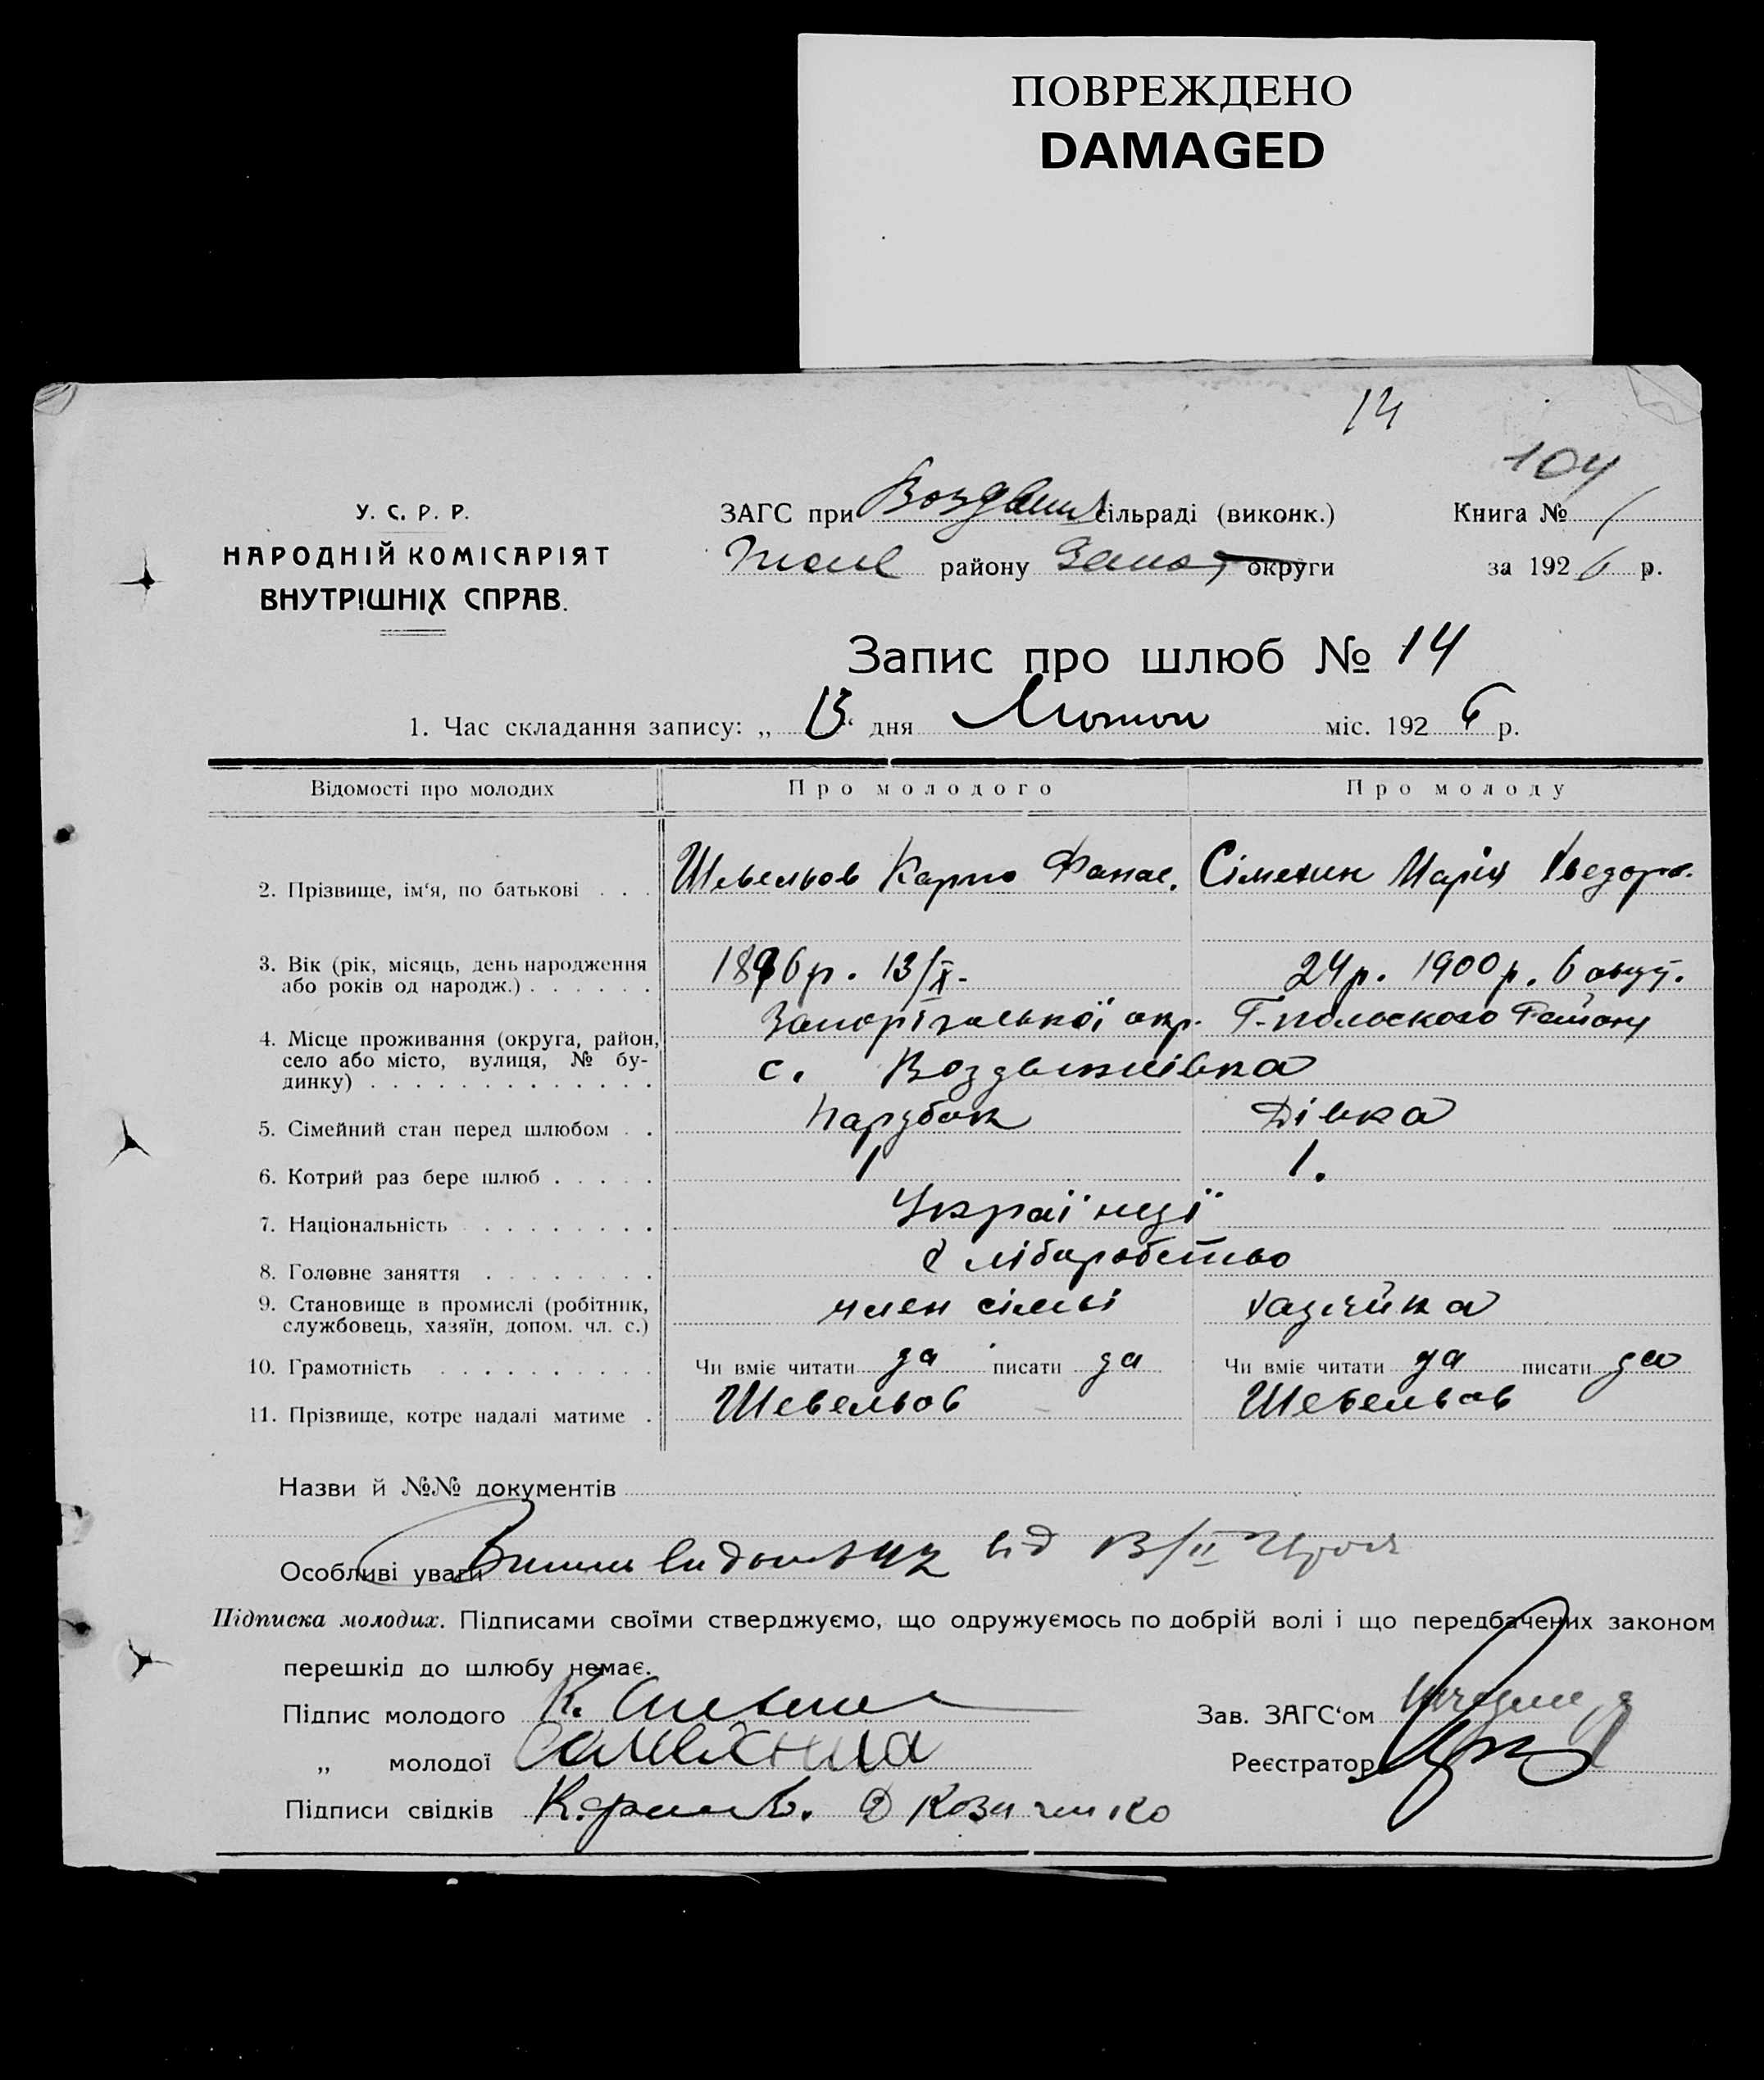 ПОВРЕЖДЕНО
DAMAGED
14
104
У. С. Р. Р.
НАРОДНІЙ КОМІСАРІЯТ
ВНУТРІШНІХ СПРАВ.
ЗАГС при Воздвиж сільраді (виконк.)
району Запор округи
Книга № 1
за 1926 р.
Запис про шлюб № 14
1. Час складання запису: „ 13 “ дня Лютого міс. 1926 р.
Відомості про молодих
Про молодого
Про молоду
2. Прізвище, ім‘я, по батькові . . .
Шевельов Карпо Фанас.
Сіменик Марія Хведоров.
3. Вік (рік, місяць, день народження або років од народж.) . . . . . .
1896 р. 13/X.
24 р. 1900 р. 6 август.
4. Місце проживання (округа, район, село або місто, вулиця, № будинку) . . . . . . . . . . . . .
Запорізської окр. Г-польского Району
с. Воздвижнівка
5. Сімейний стан перед шлюбом . .
Парубок
Дівка
6. Котрий раз бере шлюб . . . . .
1
1.
7. Національність . . . . . . . .
Українці
8. Головне заняття . . . . . . . .
хліборобство
9. Становище в промислі (робітник, службовець, хазяїн, допом. чл. с.)
член сімьї
хазяйка
10. Грамотність . . . . . . . . . .
Чи вміє читати да писати да
Чи вміє читати да писати да
11. Прізвище, котре надалі матиме .
Шевельов
Шевельов
Назви й №№ документів
Особливі уваги
від 13/II
Підписка молодих. Підписами своїми стверджуємо, що одружуємось по добрій волі і що передбачених законом
перешкід до шлюбу немає.
Підпис молодого К.
Зав. ЗАГС‘ом
„ молодої
Реєстратор
Підписи свідків Д Козиченко